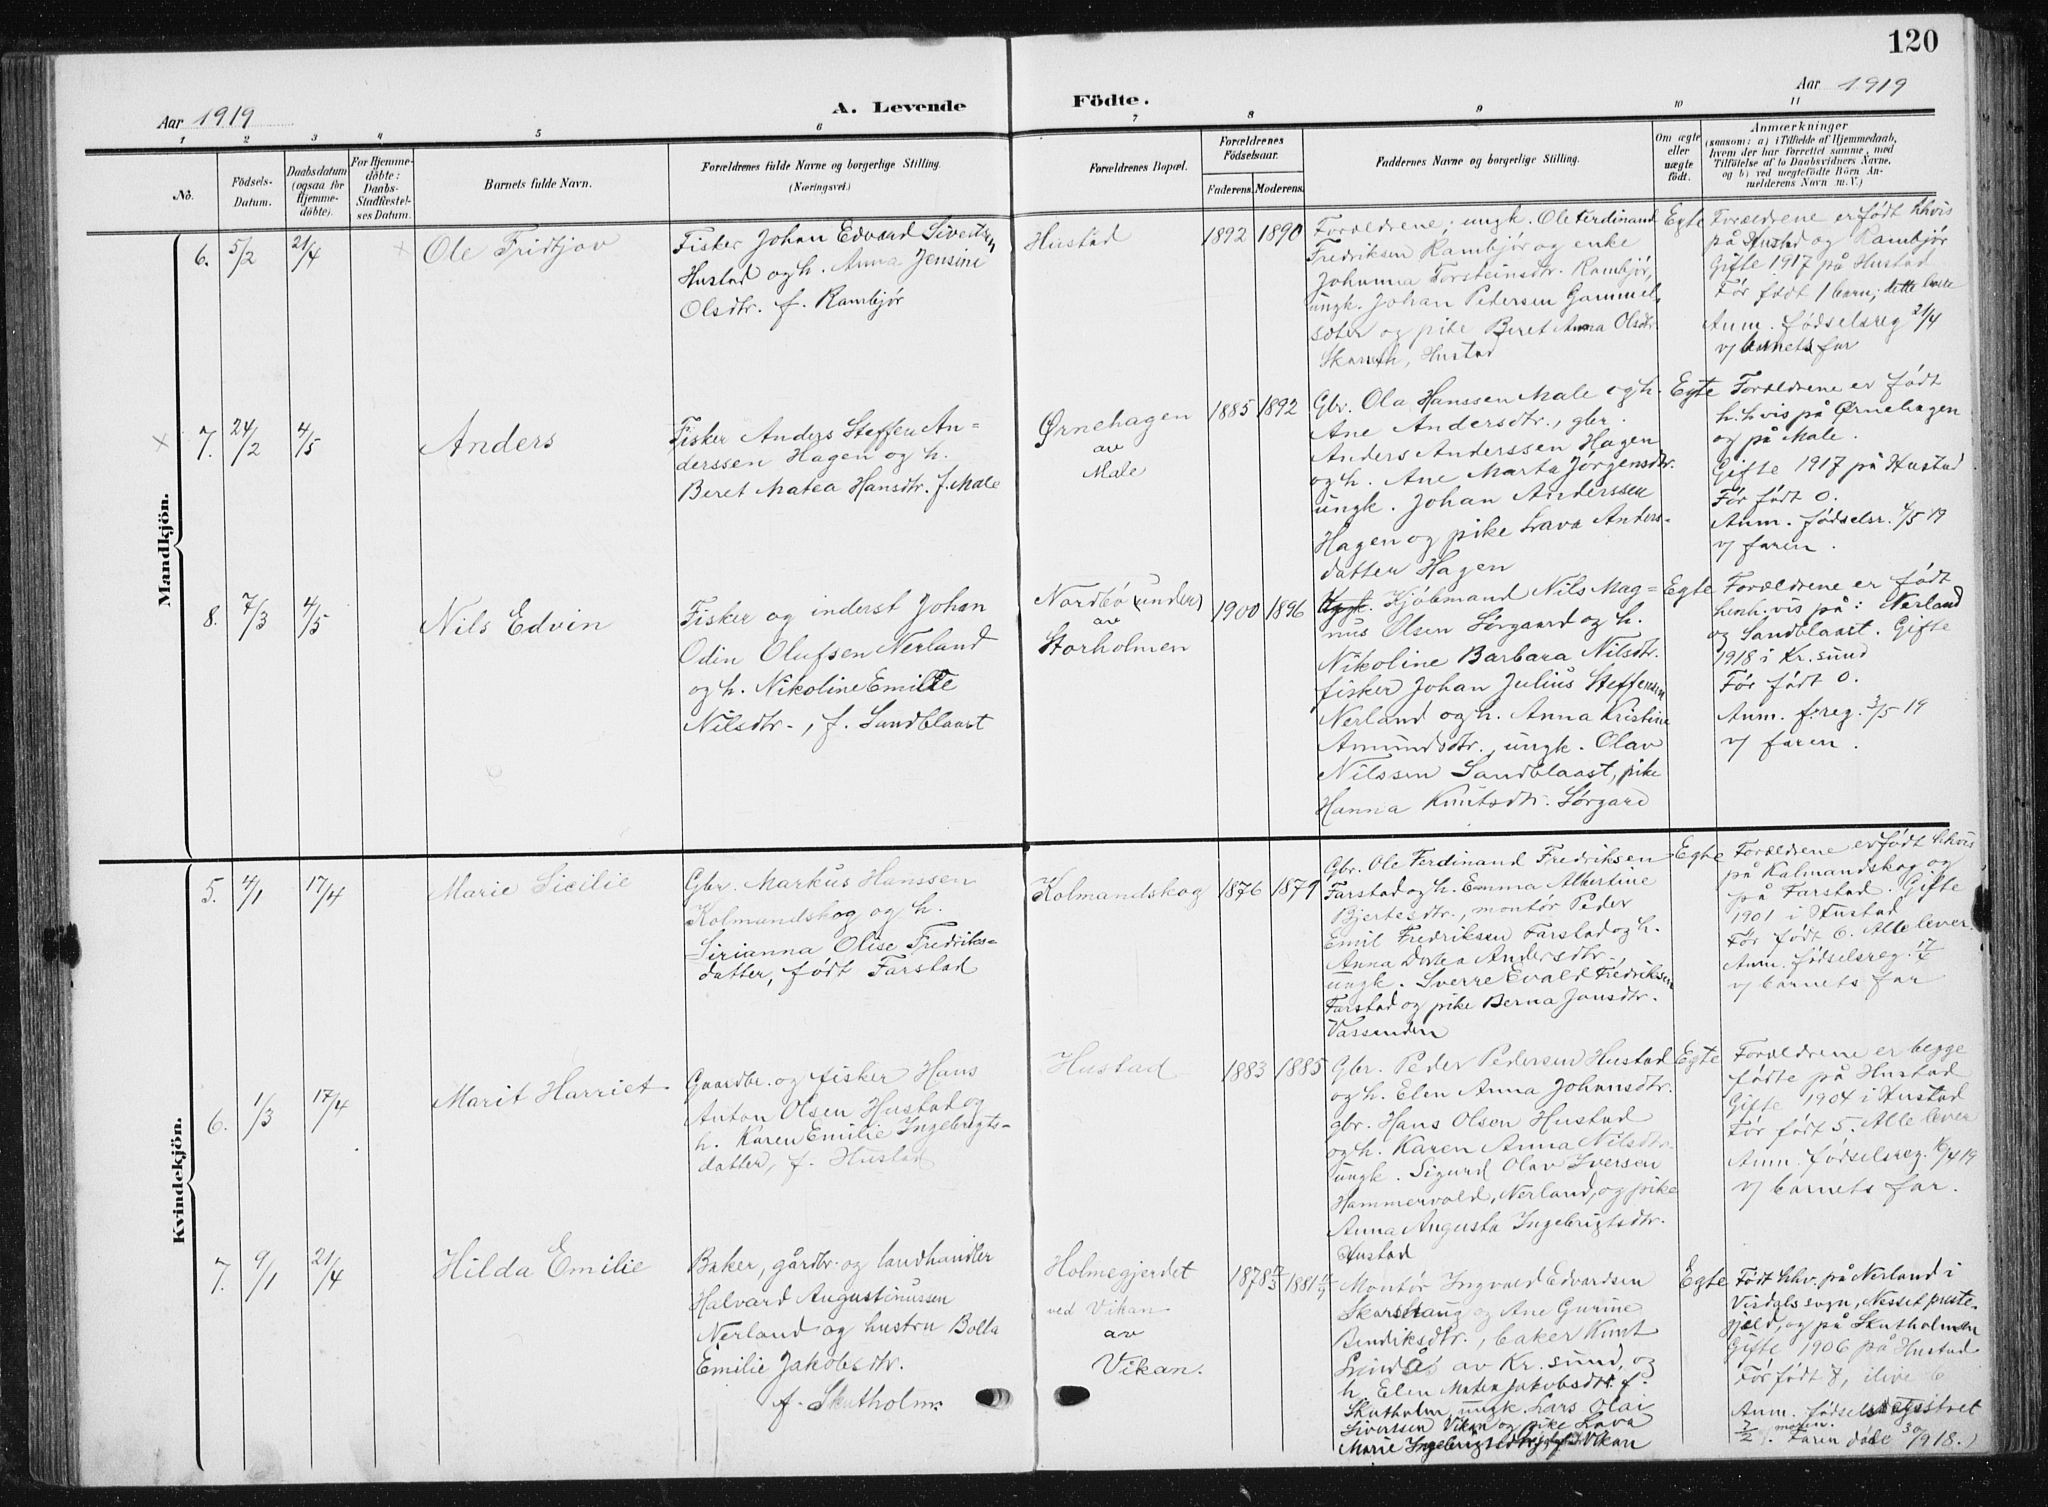 120
Aar 1919
A. Levende Födte.
Aar 1919
1 2 3 4 5 6 7 8 9 10 11
No.
Födsels-Datum.
Daabsdatum (ogsaa for Hjemmedöbte).
For Hjemmedöbte: Daabs-Stadfæstelses Datum.
Barnets fulde Navn.
Forældrenes fulde Navne og borgerlige Stilling.
(Næringsvei.)
Forældrenes Bopæl.
Forældrenes Födselsaar.
Faderens. Moderens.
Faddernes Navne og borgerlige Stilling.
Om ægte eller uægte födt.
Anmærkninger
(saasom: a) i Tilfælde af Hjemmedaab, hvem der har forrettet samme, med Tilföielse af to Daabsvidners Navne, og b) ved uægtefödte Börn Anmelderens Navn m. V.)
Mandkjön.
6. 5/2 21/4
Ole Fridtjov
Fisker Johan Edvard Sivertsen
Hustad og h. Anna Jensine
Olsdtr. f. Rambjør
Hustad
1892 1890
Forældrene; ungk. Ole Ferdinand
Fredriksen Rambjør og enke
Johanna Torsteinsdtr. Rambjør,
ungk. Johan Pedersen Gammel-
sæter og pike Beret Anna Olsdtr.
Hustad
Egte
Forældrene er født hhvis
på Hustad og Rambjør
Gifte 1917 på Hustad
Før født 1 barn; dette lever
Anm. fødselsreg 21/4
v/ barnets far
7. 24/2 4/5
Anders
Fisker Anders Steffen An-
derssen Hagen og h.
Beret Matea Hansdtr. f. Male
Ørnehagen
av
Male
1885 1892
Gbr. Ola Hanssen Male og h.
Ane Andersdtr., gbr.
Anders Anderssen Hagen
og h. Ane Marta Jørgensdtr.
ungk. Johan Anderssen
Hagen og pike Lava Anders-
datter Hagen
Egte
Forældrene er født
h.hvis på Ørnehagen
og på Male.
Gifte 1917 på Hustad
Før født 0.
Anm. fødselsr. 4/5 19
v/ faren.
8. 7/3 4/5
Nils Edvin
Fisker og inderst Johan
Odin Olufsen Nerland
og h. Nikoline Emilie
Nilsdtr., f. Sandblaast
Nordbø (under)
av
Storholmen
1900 1896
Kjøbmand Nils Mag-
nus Olsen Sørgaard og h.
Nikoline Barbara Nilsdtr.
fisker Johan Julius Steffensen
Nerland og h. Anna Kristine
Amundsdtr., ungk. Olav
Nilssen Sandblaast, pike
Hanna Knutsdtr. Sørgard
Egte
Forældrene er født
henh.vis på: Nerland
og Sandblaast. Gifte
1918 i Kr.sund
Før født 0.
Anm. f.reg. 3/5 19
v/ faren.
Kvindekjön.
5. 4/1 17/4
Marie Sicilie
Gbr. Markus Hanssen
Kolmandskog og h.
Sirianna Olise Fredriks-
datter, født Farstad
Kolmandskog
1876 1879
Gbr. Ole Ferdinand Fredriksen
Farstad og h. Emma Albertine
Bjertesdtr., montør Peder
Emil Fredriksen Farstad og h.
Anna Dortea Andersdtr.
ungk. Sverre Evald Fredriksen
Farstad og pike Berna Jonsdtr.
Vassenden
Egte
Forældrene er født hhvis
på Kolmandskog og
på Farstad. Gifte
1901 i Hustad
Før født 6. Alle lever.
Anm. fødselsreg. 17/4
v/ barnets far
6. 1/3 17/4
Marit Harriet
Gaardbr. og fisker Hans
Anton Olsen Hustad og
h. Karen Emilie Ingebrigts-
datter, f. Hustad
Hustad
1883 1885
Gbr. Peder Pedersen Hustad
og h. Elen Anna Johansdtr.
gbr. Hans Olsen Hustad
og h. Karen Anna Nilsdtr.
ungk. Sigurd Olav Iversen
Hammervold, Nerland, og pike
Anna Augusta Ingebrigtsdtr.
Hustad
Egte
Forældrene er begge
fødte på Hustad
Gifte 1904 i Hustad
Før født 5. Alle lever
Anm. fødselsreg. 16/4 19
v/ barnets far.
7. 9/1 21/4
Hilda Emilie
Baker, gårdbr. og landhandler
Halvard Augustinussen
Nerland og hustru Bolla
Emilie Jakobsdtr.
f. Skutholm.
Holmegjerdet
ved Vikan
av
Vikan.
1878 1881
Montør Ingvald Edvardsen
Skarshaug og Ane Gurine
Bendriksdtr., baker Knut
av Kr.sund, og
h. Elen Matea Jakobsdtr. f.
Skutholm, ungk. Lars Olai
Siverssen Vikan og pike Lava
Marie Ingebrigtsdtr. Vikan
Egte
Født hhv. på Nerland i
Visdals sogn, Nesset preste-
gjeld, og på Skutholmen
Gifte 1906 på Hustad
Før født 7, ilive 6
Anm. fødselsregistret
7/2 moren.
Faren døde 1918.)